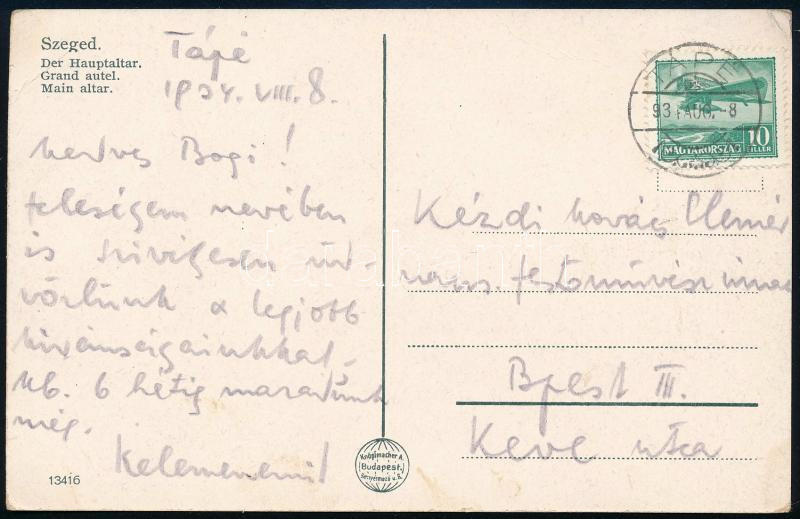 Szeged.
Der Hauptaltar.
Grand autel.
Main altar.
Tápé
1934. VIII. 8.
kedves Bogi!
feleségem nevében
is szivélyesen üd-
vözlünk a legjobb
kivánságainkkal.
kb. 6 hétig maradunk
még.
13416
Knöpfmacher A.
Budapest.
TÁPÉ
934 AUG. -8
10
MAGYARORSZÁG FILLÉR
Kézdi Kovács Elemér
festőművész
Bpest III.
Keve utca
darabanth